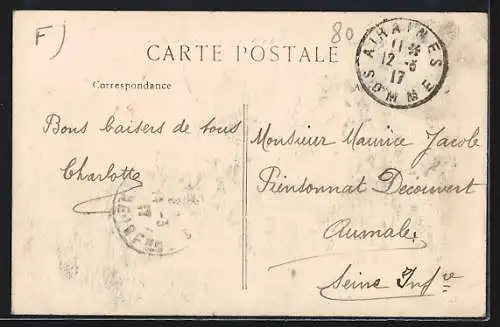 F)
80
CARTE POSTALE
AIRAINES
11
12 -3
17
SOMME
Correspondance
Bons baisers de tous
Charlotte
Monsieur Maurice Jacob
Pensionnat Decouvert
Aumale
Seine Infre